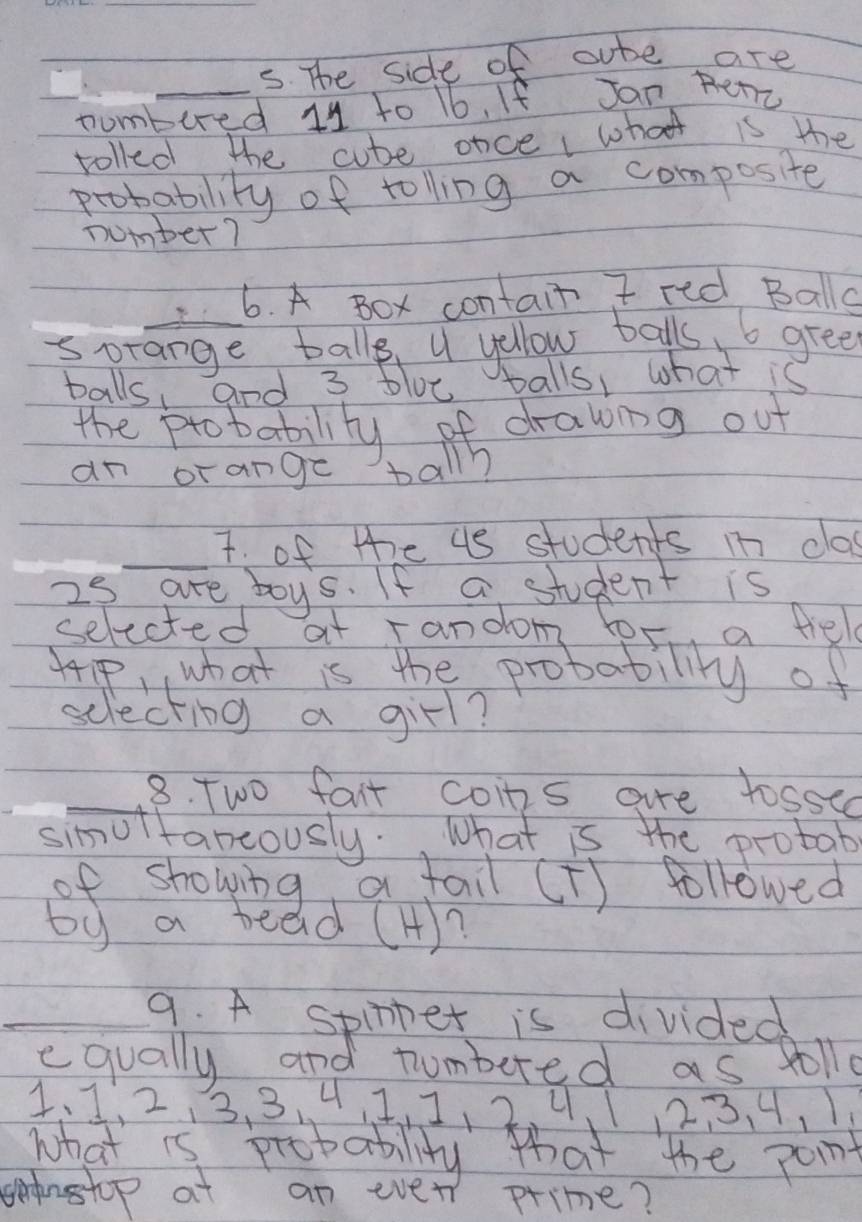 5. The side of cube are
numbered 11 to 16. If Jan Renz
rolled the cube once, what is the
probability of rolling a composite
number?
6. A Box contain 7 red Balls
5 orange balls, 4 yellow balls, 6 green
balls, and 3 blue balls, what is
the probability of drawing out
an orange ball?
7. of the 45 students in clas
25 are boys. If a student is
selected at random for a field
trip, what is the probability of
selecting a girl?
8. Two fair coins are tossed
simultaneously. What is the probab
of showing a tail (T) followed
by a head (H)?
9. A spinner is divided
equally and numbered as follo
1, 1, 2, 3, 3, 4, 1, 1, 2, 4, 1, 2, 3, 4, 1,
What is probability that the point
stop at an even prime?